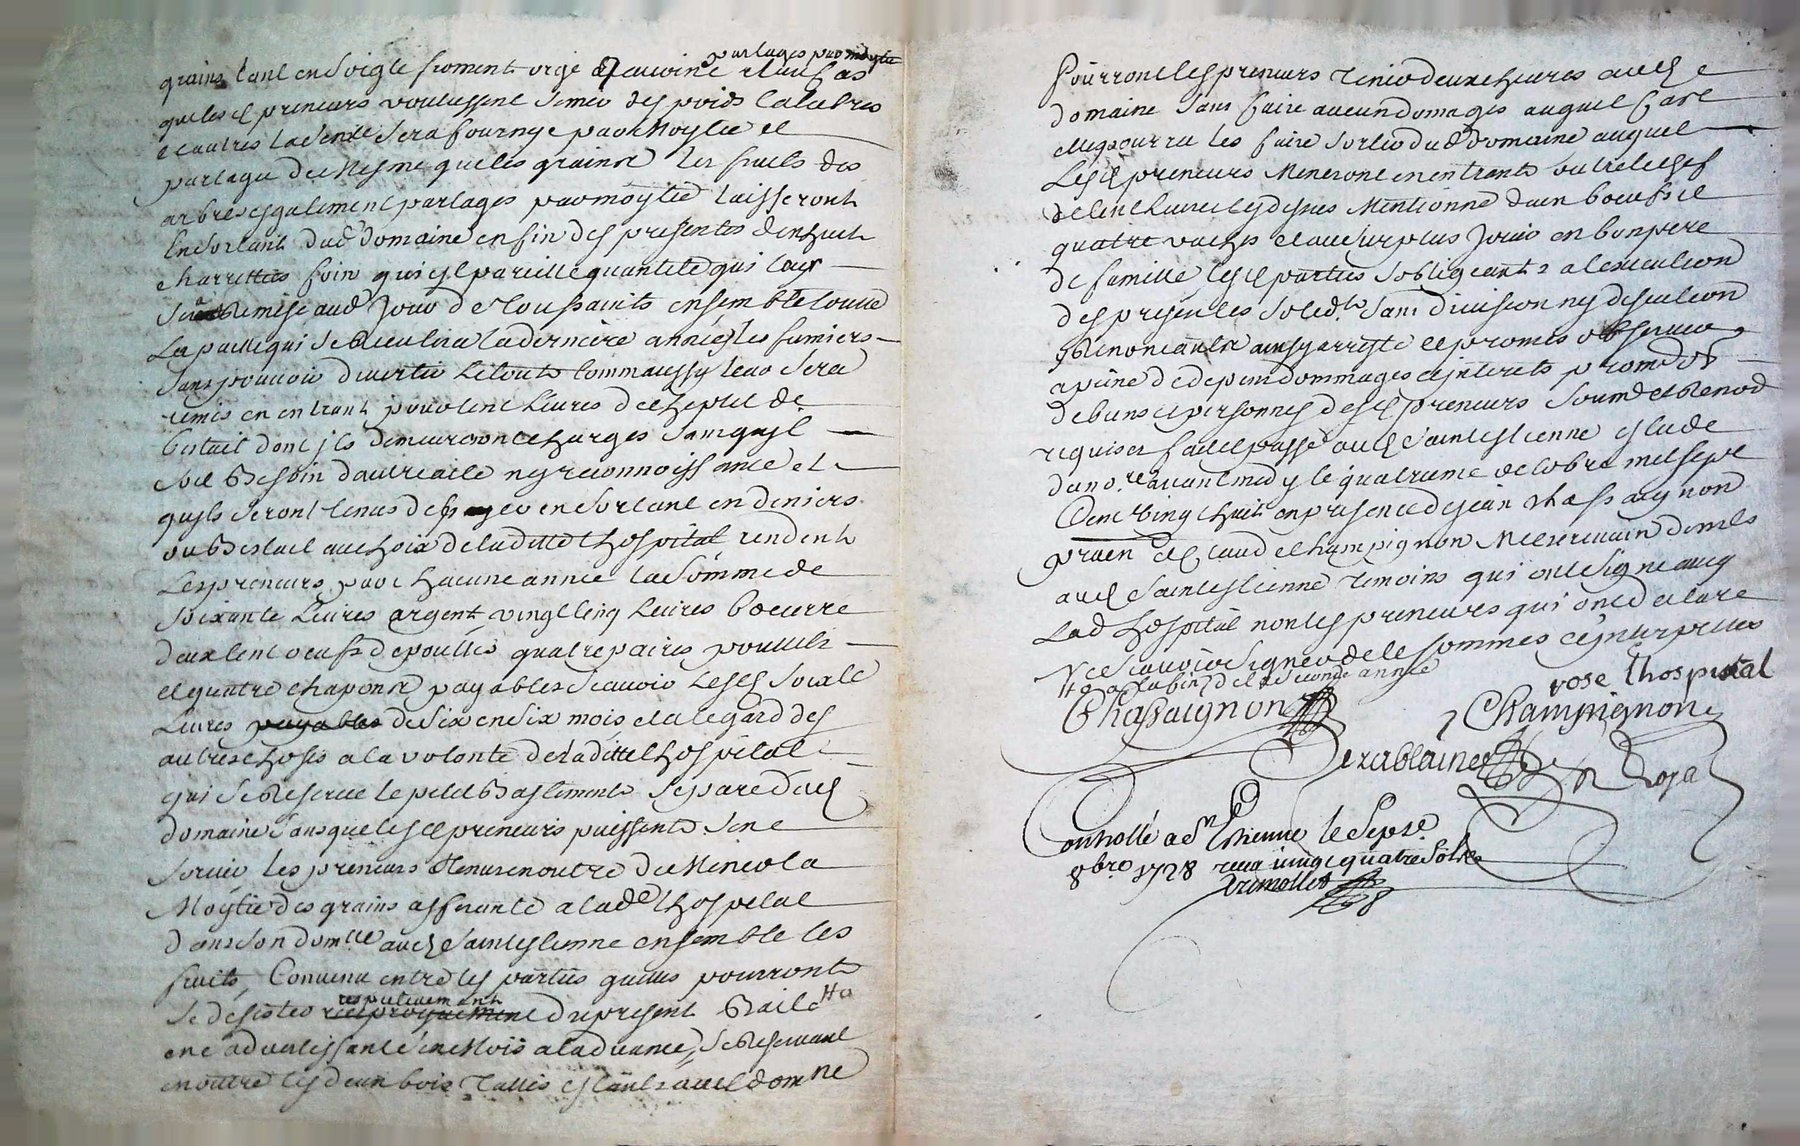 partages par moytie
grains tant en soigle froment orge et avoine et au cas
que lesd preneurs voulussent semer des pois calabres
et autres la sence sera fournye par moytie et
partagé de mesme que les grains les fruits des
arbres egalement partages par moytié laisseront
en sortant dud domaine en fin des presentes
charrettes foin qui pareille quantité qui leur
sera remise aud jour de Toussaints ensemble toutte
la paille qui se recullira la derniere année les fumiers
sans pouvoir divertir le tout comme aussy leur sera
remis en entrant pour cent livres de cheptel de
bestail dont ils demeureront charges sans quil
soit besoin dautre acte ny reconnoissance et
quils seront tenus de payer en sortant en deniers
ou bestail au choix de laditte lhospital rendent
les preneurs par chacune année la somme de
soixante livres argent vingt cinq livres beurre
deux cent oeufs de poulles quatre paires poulets
et quatre chapons payables scavoir lesd soixte
livres payables de six en six mois et a legard des
autres choses a la volonté de laditte lhospital
qui se reserve le petit bastiments separé dud
domaine sans que lesd preneurs puissent sen
servir les preneurs tenus en outre de mener la
moytie des grains afferants a lade lhospital
dans son domlle aud Saint estienne ensemble les
fruits, Convenu entre les parties quelles pourront
respectivement
se desister reciproquement du present bail Ho
en advertissant six mois a ladvance, se reservant
en outre les deux bois taillis estants aud domne
Pourront lesd preneurs tenir deux chevres aud
domaine sans faire aucun domages auquel cas
elle pourra les faire sortir dud domaine auquel
lesd preneurs meneront en entrants outre le chef
de cent livres cy dessus mentionné deux boeufs et
quatre vaches et au surplus jouir en bon pere
de famille lesd parties sobligeants a lexecution
des presentes solidt sans division ny discution
renoncants ainsy arresté et promis observer
a peine de depens dommages et interets promt obt
de biens et personnes desd preneurs soumet et renod
requises fait et passé aud Saint estienne estude
du nore avant midy le quatrieme octobre mil sept
Cent vingt huit en presence de jean Chassaignon
prtien et Claud Champignon Me serrurier demts
aud Saint estienne temoins qui ont signe avec
lad lhospital non les preneurs qui ont declare
ne scavoir signer de ce sommes et interpelles
Ho a la fin de la seconde année
rose lhospital
Chassaignon Champignon
Dezablaines
Controllé a St Etienne le sept
8bre 1728 receu vingt quatre sols
Trimollet